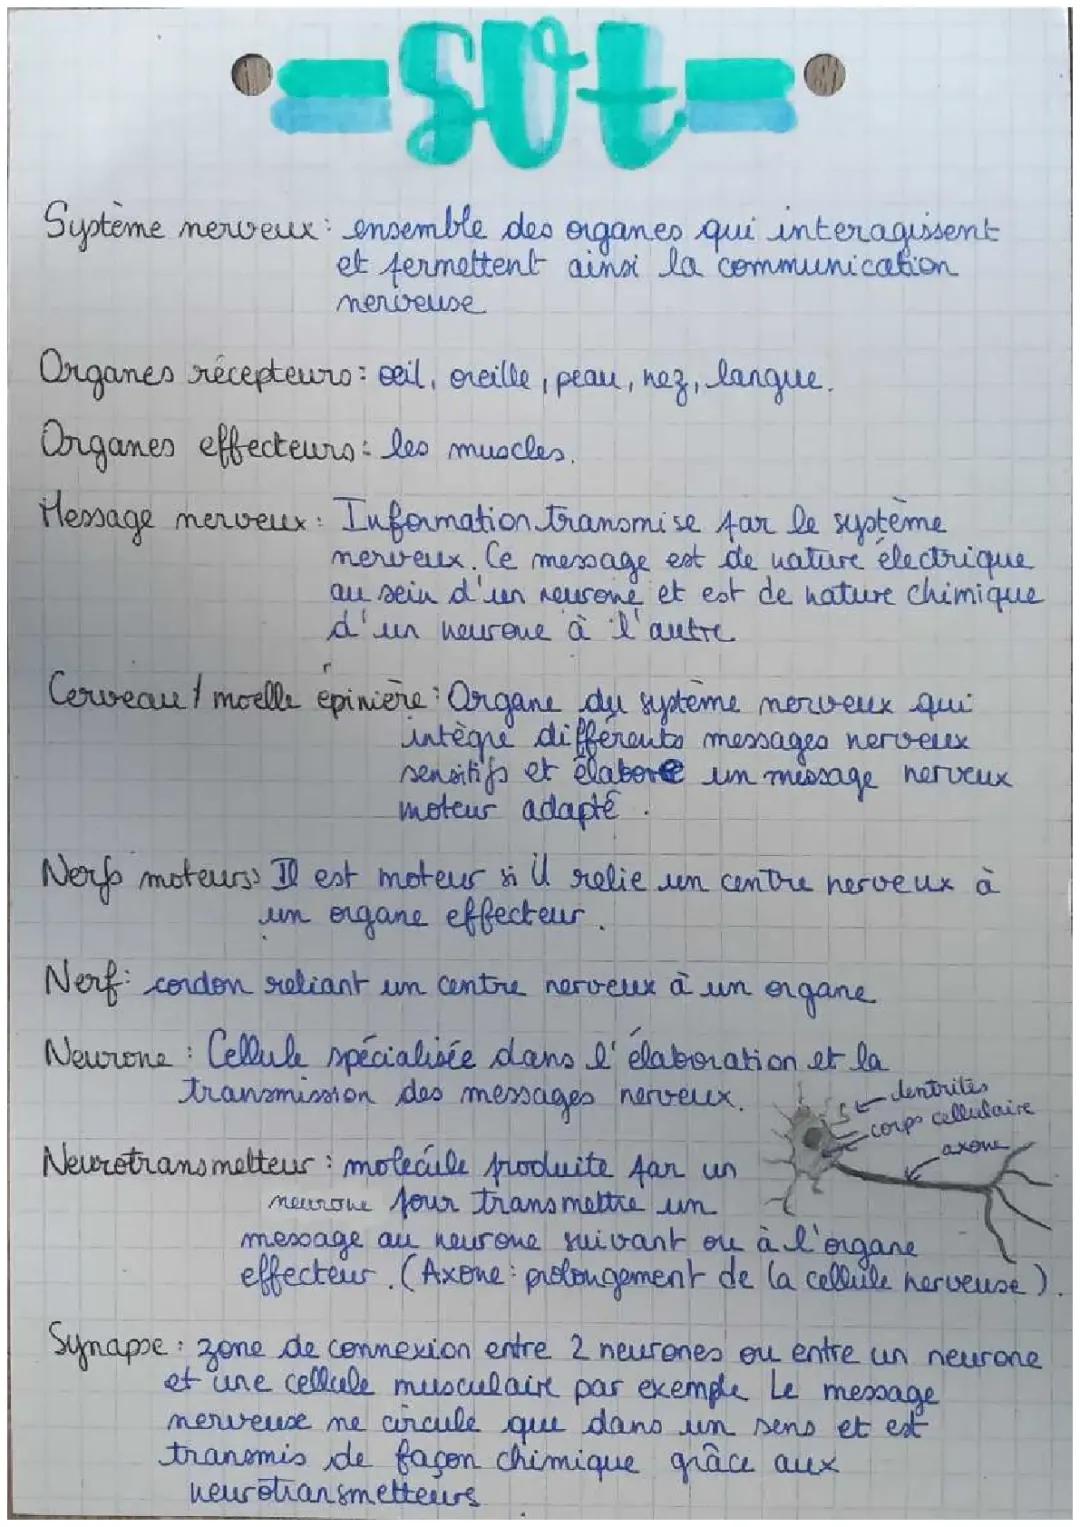 SVt
Système nerveux : ensemble des organes qui interagissent
et permettent ainsi la communication
nerveuse
Organes récepteurs : œil, oreille, peau, nez, langue.
Organes effecteurs : les muscles.
Message nerveux : Information transmise par le système
nerveux. Ce message est de nature électrique
au sein d'un neurone et est de nature chimique
d'un neurone à l'autre
Cerveau / moelle épinière : Organe du système nerveux qui
intègre différents messages nerveux
sensitifs et élabore un message nerveux
moteur adapté.
Nerfs moteurs : Il est moteur si il relie un centre nerveux à
un organe effecteur.
Nerf : cordon reliant un centre nerveux à un organe
Neurone : Cellule spécialisée dans l'élaboration et la
transmission des messages nerveux.
dentrites
corps cellulaire
axone
Neurotransmetteur : molécule produite par un
neurone pour transmettre un
message au neurone suivant ou à l'organe
effecteur. (Axone : prolongement de la cellule nerveuse).
Synapse : zone de connexion entre 2 neurones ou entre un neurone
et une cellule musculaire par exemple Le message
nerveuse ne circule que dans un sens et est
transmis de façon chimique grâce aux
neurotransmetteurs